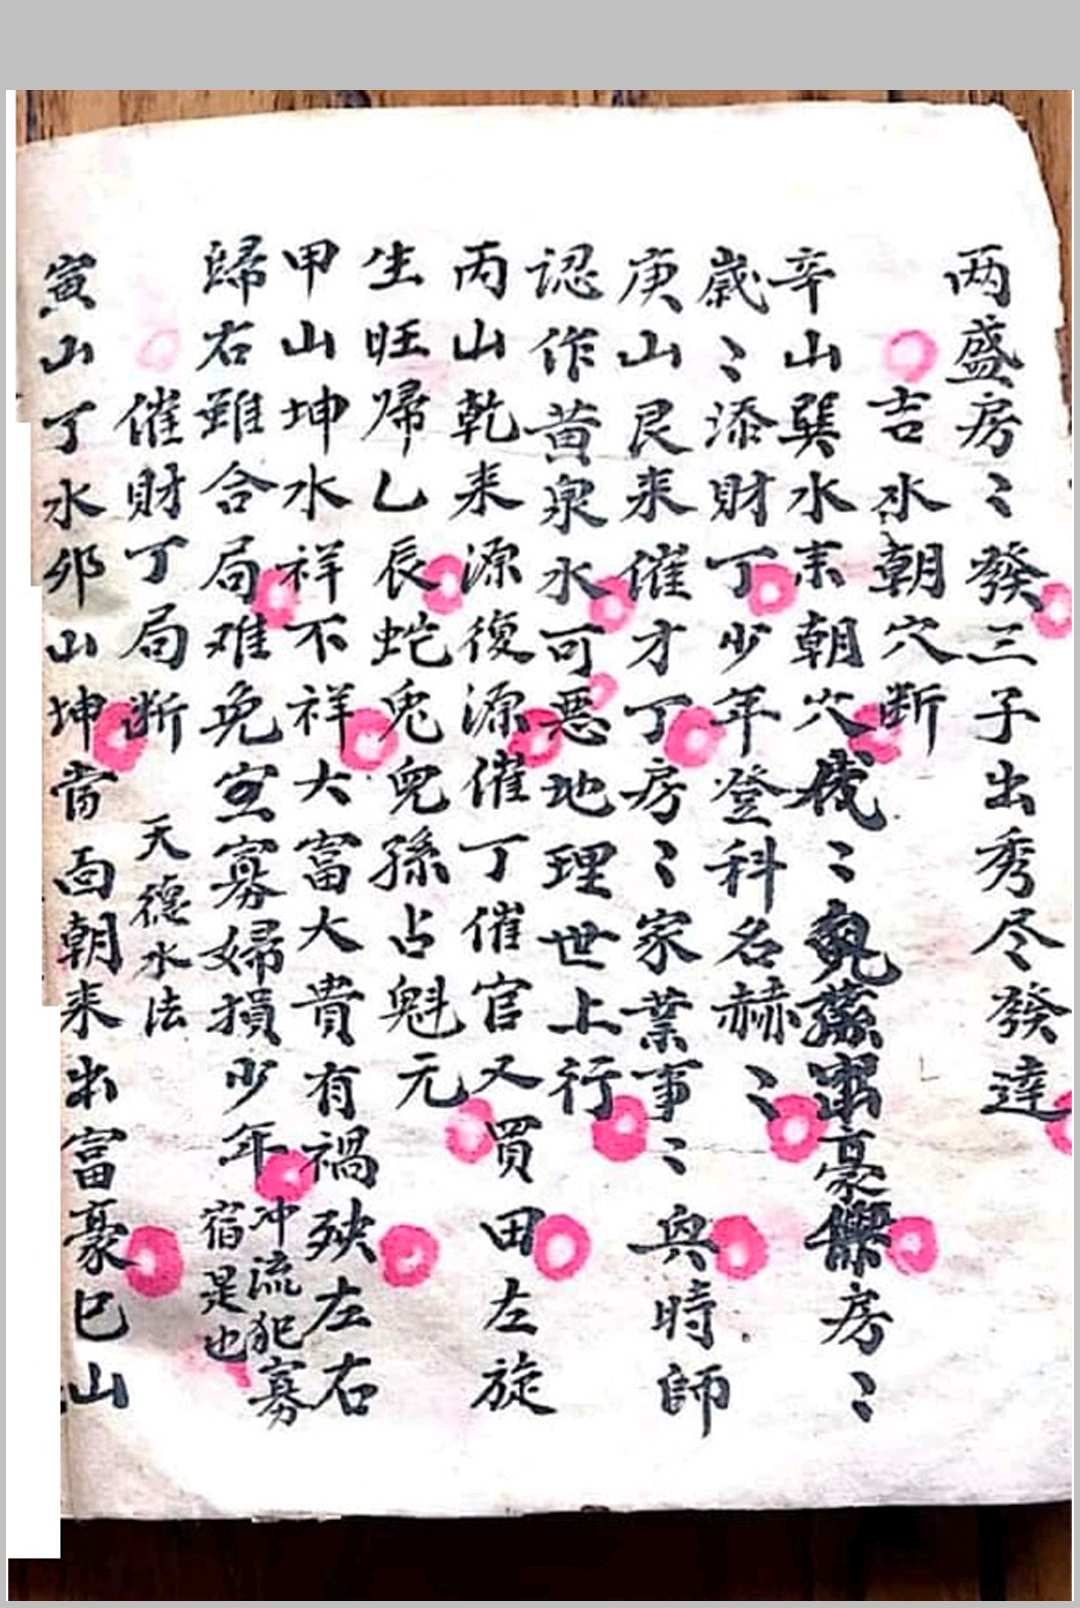 两盛房〻發三子出秀尽發達
吉水朝穴断
辛山巽水来朝穴代〻兒孫出豪傑房〻
歲〻添財丁少年登科名赫〻
庚山艮来催才丁房〻家業事〻興時師
認作黄泉水可惡地理世上行
丙山乾来源復源催丁催官又買田左旋
生旺帰乙辰蛇兎兒孫占魁元
甲山坤水祥不祥大富大貴有禍殃左右
歸右雖合局难免寡婦損少年
冲流犯寡
宿是也
催財丁局断
天德水法
寅山丁水夘山坤當面朝来出富豪巳山